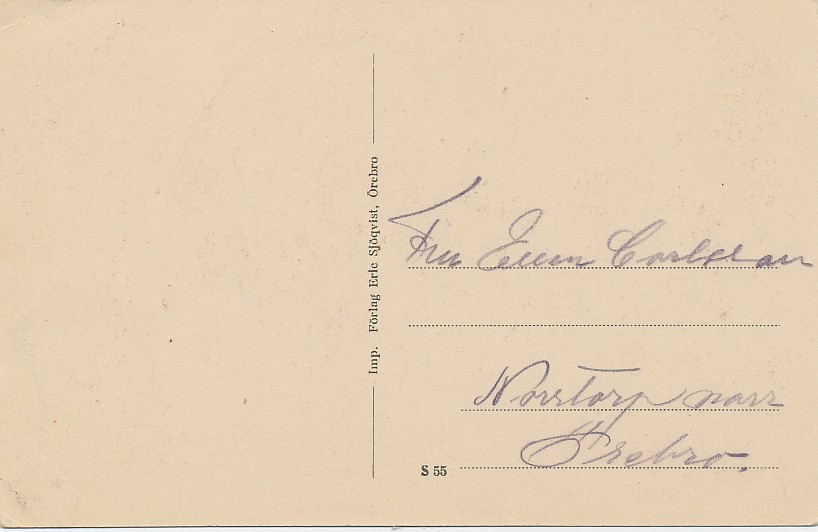 Imp. Förlag Eric Sjöqvist, Örebro
Fru Ellen Carlsson
Norrtorp norr
Örebro.
S 55